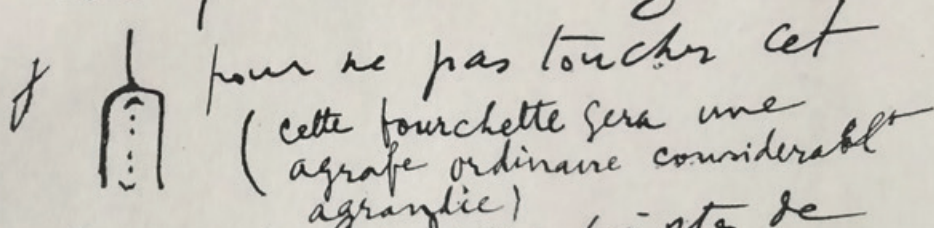 pour ne pas toucher cet
(cette fourchette sera une
agrafe ordinaire considerablt
agrandie)
de